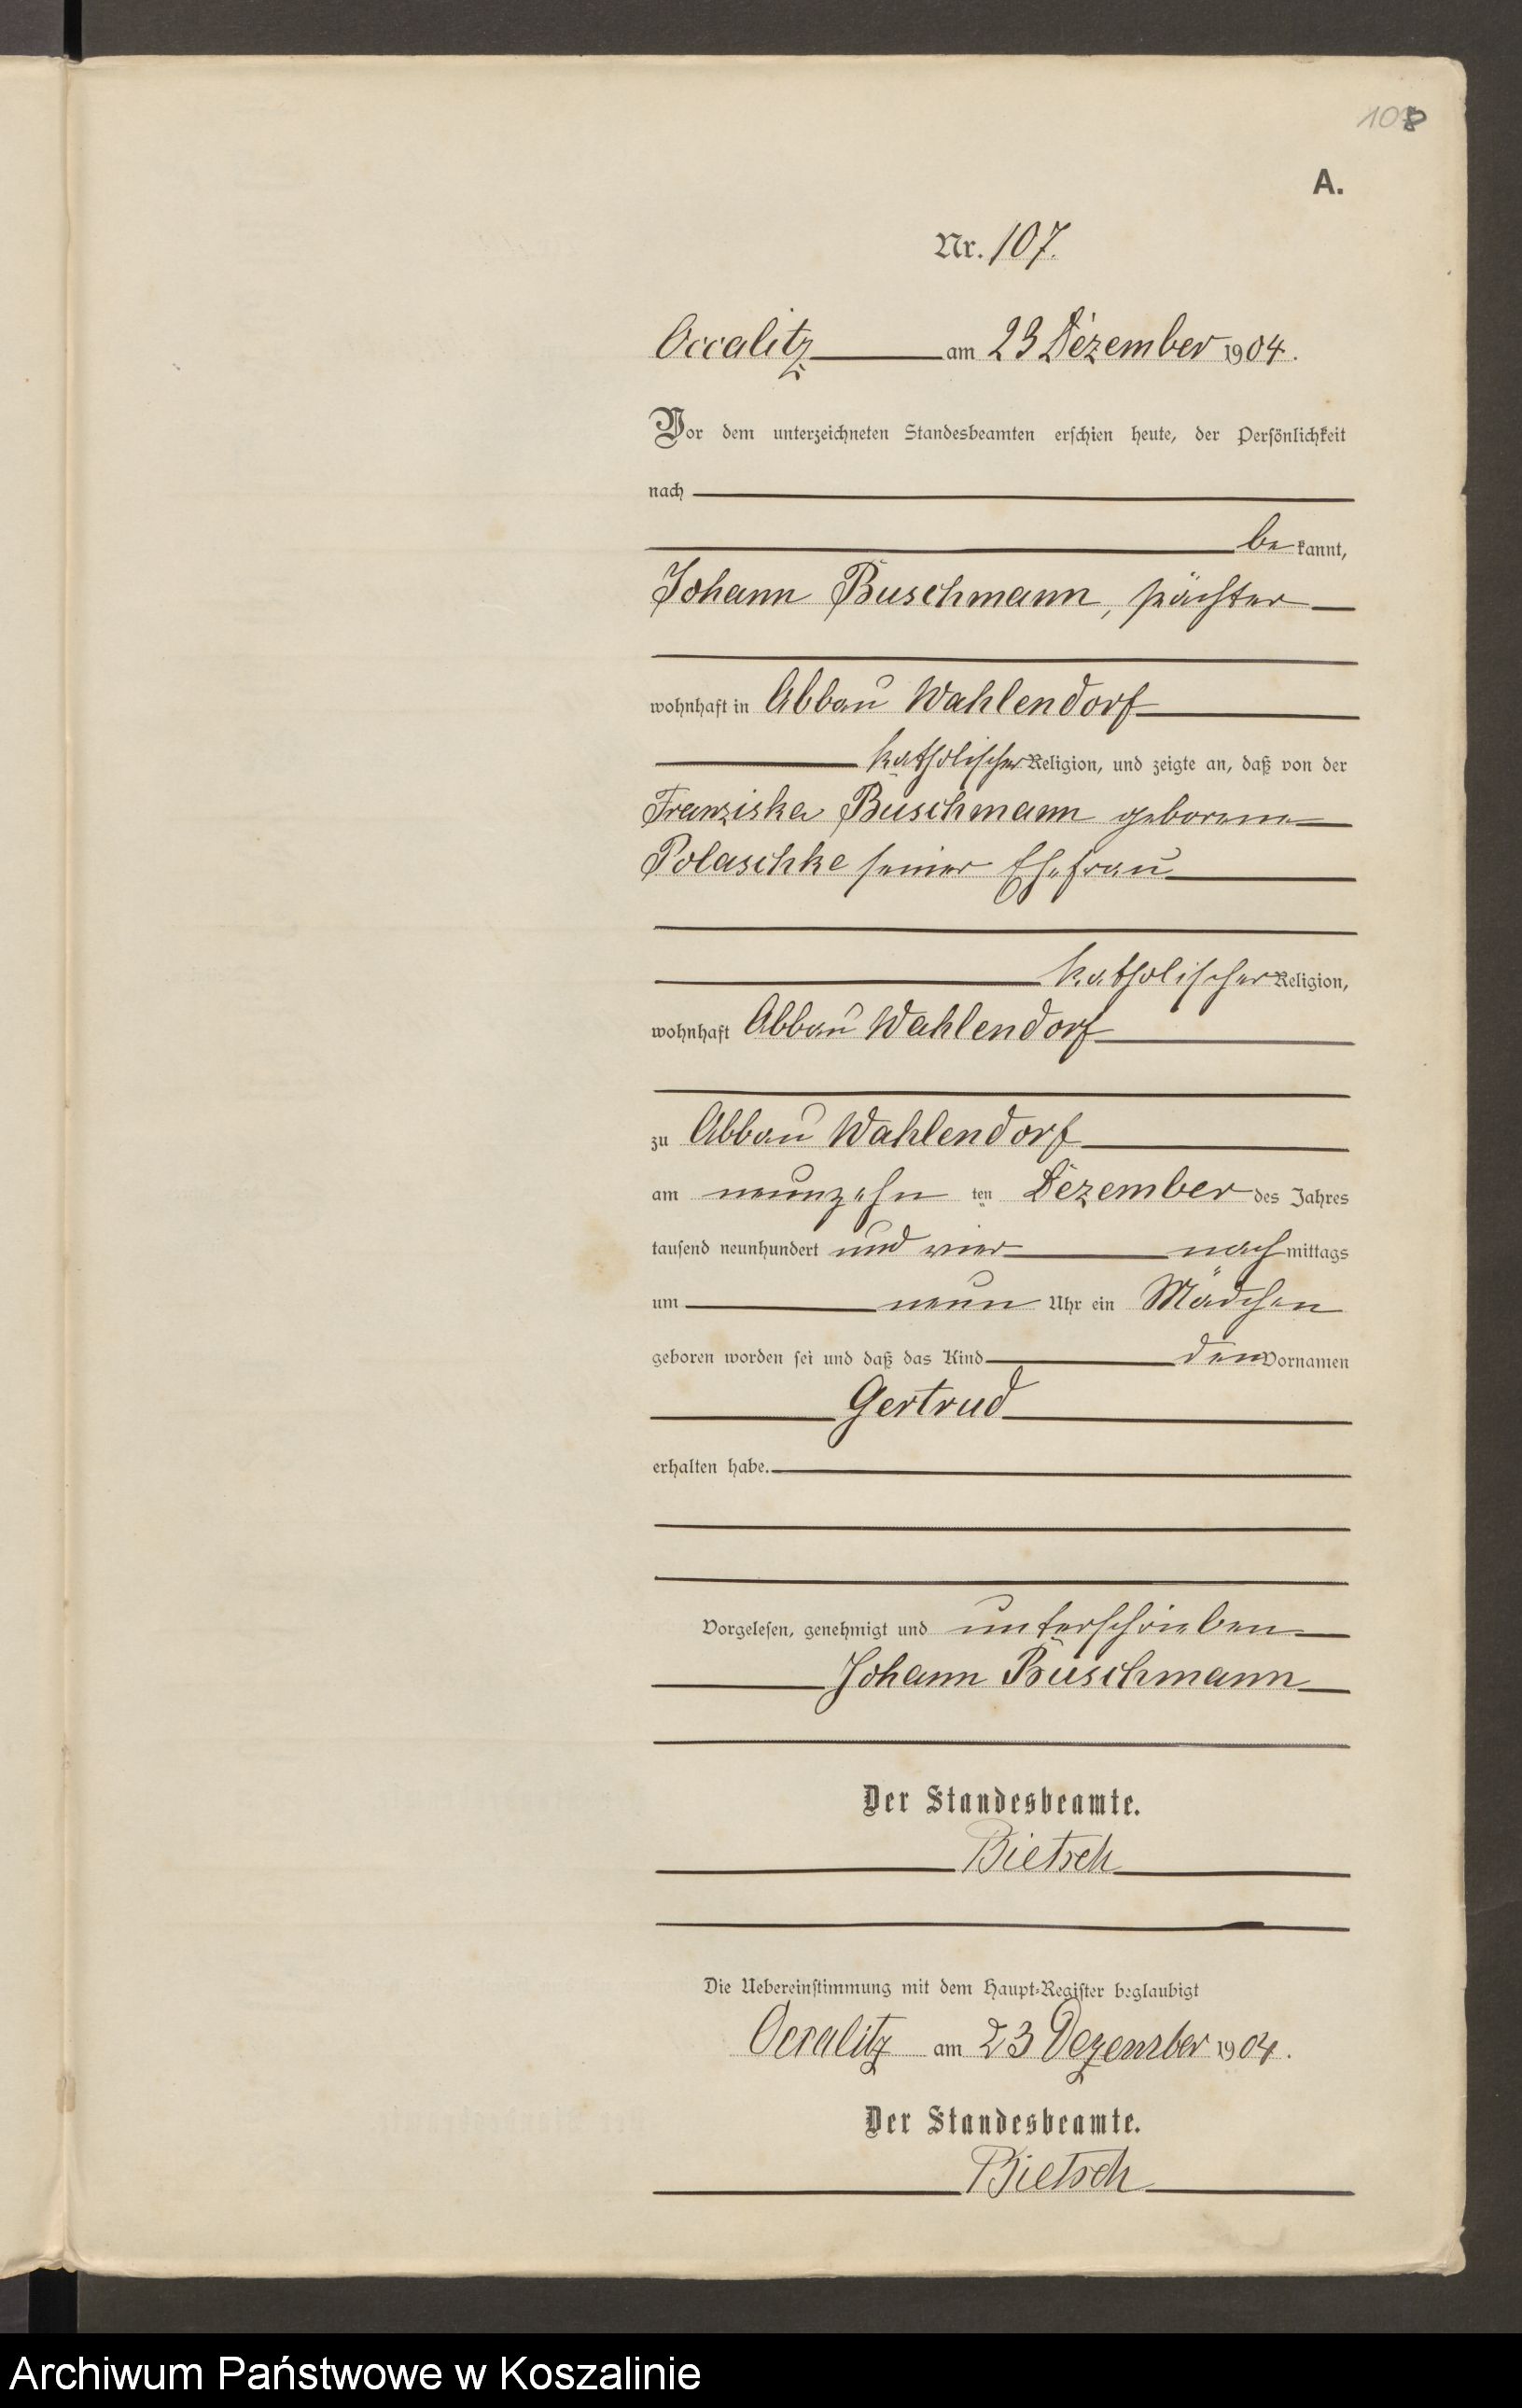 108
A.
Nr. 107.
Occalitz am 23 Dezember 1904.
Vor dem unterzeichneten Standesbeamten erschien heute, der Persönlichkeit
nach
be kannt,
Johann Buschmann, Pächter
wohnhaft in Abbau Wahlendorf
katholischer Religion, und zeigte an, daß von der
Franziska Buschmann geborene
Polaschke seiner Ehefrau
katholischer Religion,
wohnhaft Abbau Wahlendorf
zu Abbau Wahlendorf
am neunzehn ten Dezember des Jahres
tausend neunhundert und vier nach mittags
um neun Uhr ein Mädchen
geboren worden sei und daß das Kind den Vornamen
Gertrud
erhalten habe.
Vorgelesen, genehmigt und unterschrieben
Johann Buschmann
Der Standesbeamte.
Bietsch
Die Uebereinstimmung mit dem Haupt-Register beglaubigt
Occalitz am 23 Dezember 1904.
Der Standesbeamte.
Bietsch
Archiwum Państwowe w Koszalinie